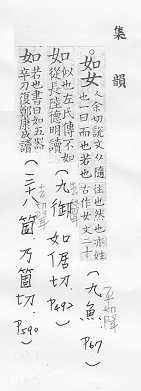 集韻
如女 人余切說文从隨也一曰往也然也亦姓
也一曰而也若也古作女文二十
(九魚.P67)
如 似也左氏傳不如
從長陸德明讀
(九御 如倨切.P492)
如 若也書曰如五器
卒乃復鄭康成讀
(三十八箇.乃箇切.P590)